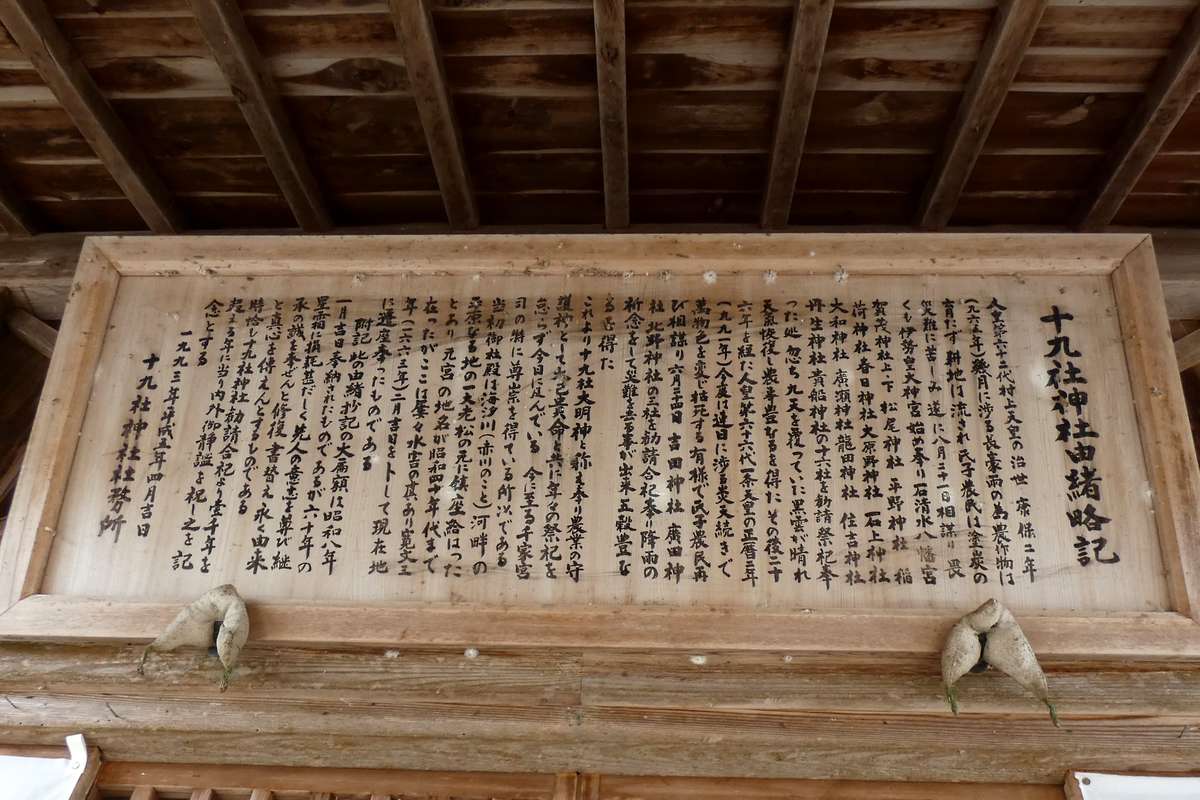 十九社神社由緒略記
人皇第六十二代村上天皇の治世 康保二年
(九六五年)幾月に渉る長豪雨の為農作物は
育たず耕地は流され民子農民は塗炭の
災難に苦しみ 遂に八月二十一日相謀り 畏
くも伊勢皇大神宮始め奉り石清水八幡宮
賀茂神社上・下 松尾神社 平野神社 稲
荷神社 春日神社 大原野神社 石上神社
大和神社 廣瀬神社 龍田神社 住吉神社
丹生神社 貴船神社の十六社を勧請祭祀奉
った処 忽ち九天を覆っていた黒雲が晴れ
天候恢復し農事豊なるを得た その後二十
六年を経た人皇第六十六代一条天皇の正暦二年
(九九一年)今度は連日に渉る炎天続きで
萬物色を変じ枯死する有様で氏子農民再
び相謀り六月二十四日 吉田神社 廣田神
社 北野神社の三社を勧請合祀奉り降雨の
祈念をし災難去る事が出来 五穀豊な
るを得た
これより十九社大明神と称え奉り農業の守
護神として六ヶ邑共命一共に年々の祭祀を
怠らず今日に及んでいる 今に至る千家宮
司の特に尊崇を得ている所以である
当初御社殿は海汐川(赤川のこと)河畔の
亞原なる地の大老松の元に鎮り坐し給はった
とあり元宮の地名が昭和四十年代まで
在ったがここは屡々水害の爲あり寛文三
年(一六六三年)二月吉日を卜して現在地
に遷座奉ったものである
附記 此の由緒抄記の大扁額は昭和八年
一月吉日奉納されたものであるが六十年の
星霜に損耗甚だしく先人の意志を尊び継
承の誠を奉ぜんと修復・書替え永く由来
と真心を傳えんとするものである
時恰も十九社神社勧請合祀より壹千年を
超える年に当り内外御静謐を祝し之を記
念とする
一九九三年平成五年四月吉日
十九社神社社務所